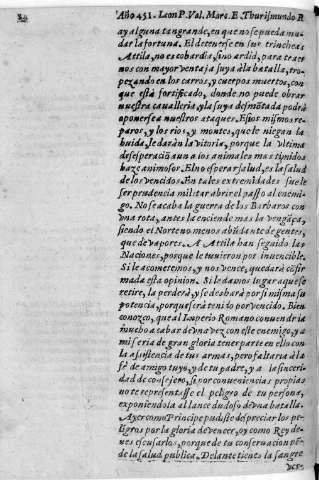 Año 451. Leon P. Val. Marc. E. Thurismundo R.
ay alguna tan grande, en que no se pueda mu-
dar la fortuna. El detenerse en sus trincheas
Attila, no es cobardia, sino ardid, para traer
nos con mayor ventaja suya à la batalla, tro-
peçando en los carros, y cuerpos muertos, con
que està fortificado, donde no puede obrar
nuestra cavalleria, y la suya desmõtada podrà
oponerse a nuestros ataques. Estos mismos re-
paros, y los rios, y montes, que le niegan la
huida, le daràn la vitoria, porque la vltima
desesperaciõ aun a los animales mas timidos
haze animosos. El no esperar salud, es la salud
de los vencidos. En tales extremidades suele
ser prudencia militar abrir el passo al enemi-
go. No se acaba la guerra de los Barbaros con
vna rota, antes la enciende mas la vengãça,
siendo el Norte no menos abũdante de gentes,
que de vapores. A Attila han seguido las
Naciones, porque le tuvieron por invencible.
Si le acometemos, y no vence, quedarà cõfir
mada esta opinion. Si le damos lugar a que se
retire, la perderà, y se desharà por si misma su
potencia, porque serà tenido por vencido. Bien
conozco, que al Imperio Romano convendria
mucho acabar de vna vez con este enemigo, y a
mi seria de gran gloria tener parte en ello con
la assistencia de tus armas, pero faltaria à la
fè de amigo tuyo, y de tu padre, y a la sinceri-
dad de consejero, si por conveniencias propias
no te representasse el peligro de tu persona,
exponiendola al lance dudoso de vna batalla.
Ayer como Principe pudiste despreciar los pe-
ligros por la gloria de vencer, oy como Rey de-
ves escusarlos, porque de tu conservacion pẽ-
de la salud publica. Delante tienes la sangre